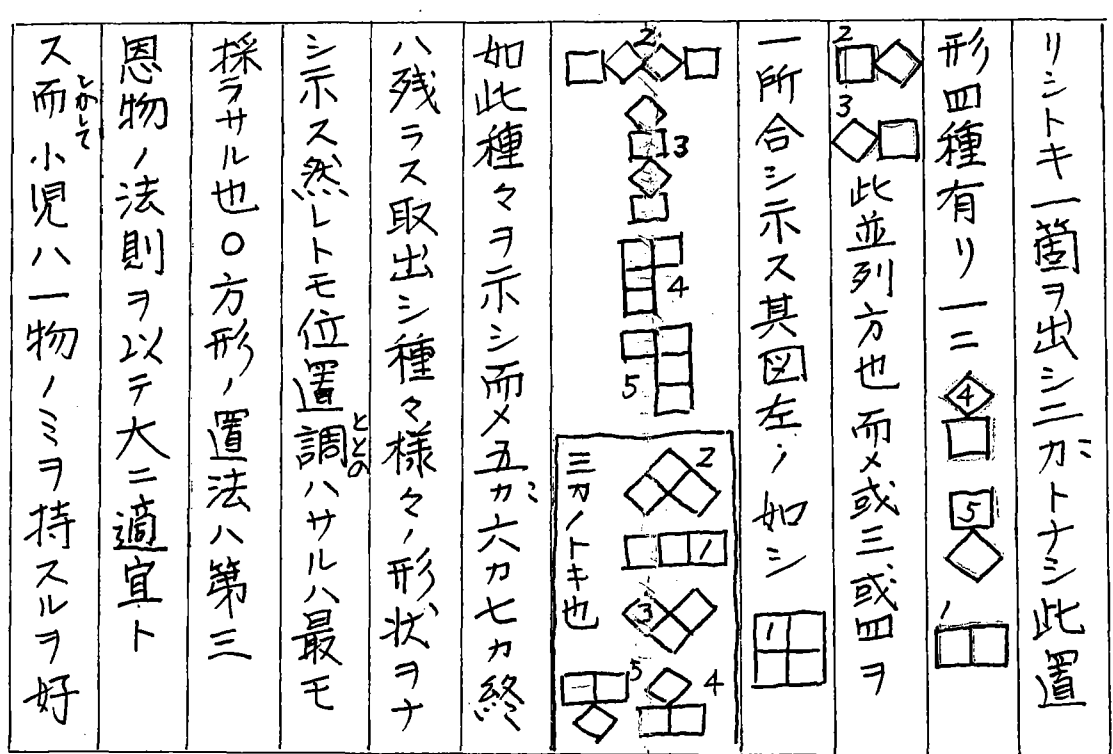 リシトキ一箇ヲ出シ二カ゛トナシ此置
形四種有リ一ニ 4 5 1
2 3 此並列方也而〆或三或四ヲ
一所合シ示ス其図左ノ如シ 1
2 3 4 5
三カノトキ也 2 1 3 5 4
如此種々ヲ示シ而〆五カ゛六カ七カ終
ハ残ラス取出シ種々様々ノ形状ヲナ
シ示ス然レトモ位置調ハサルハ最モ
ととの
採ラサル也〇方形ノ置法ハ第三
恩物ノ法則ヲ以テ大ニ適宜ト
ス而小児ハ一物ノミヲ持スルヲ好
しかして